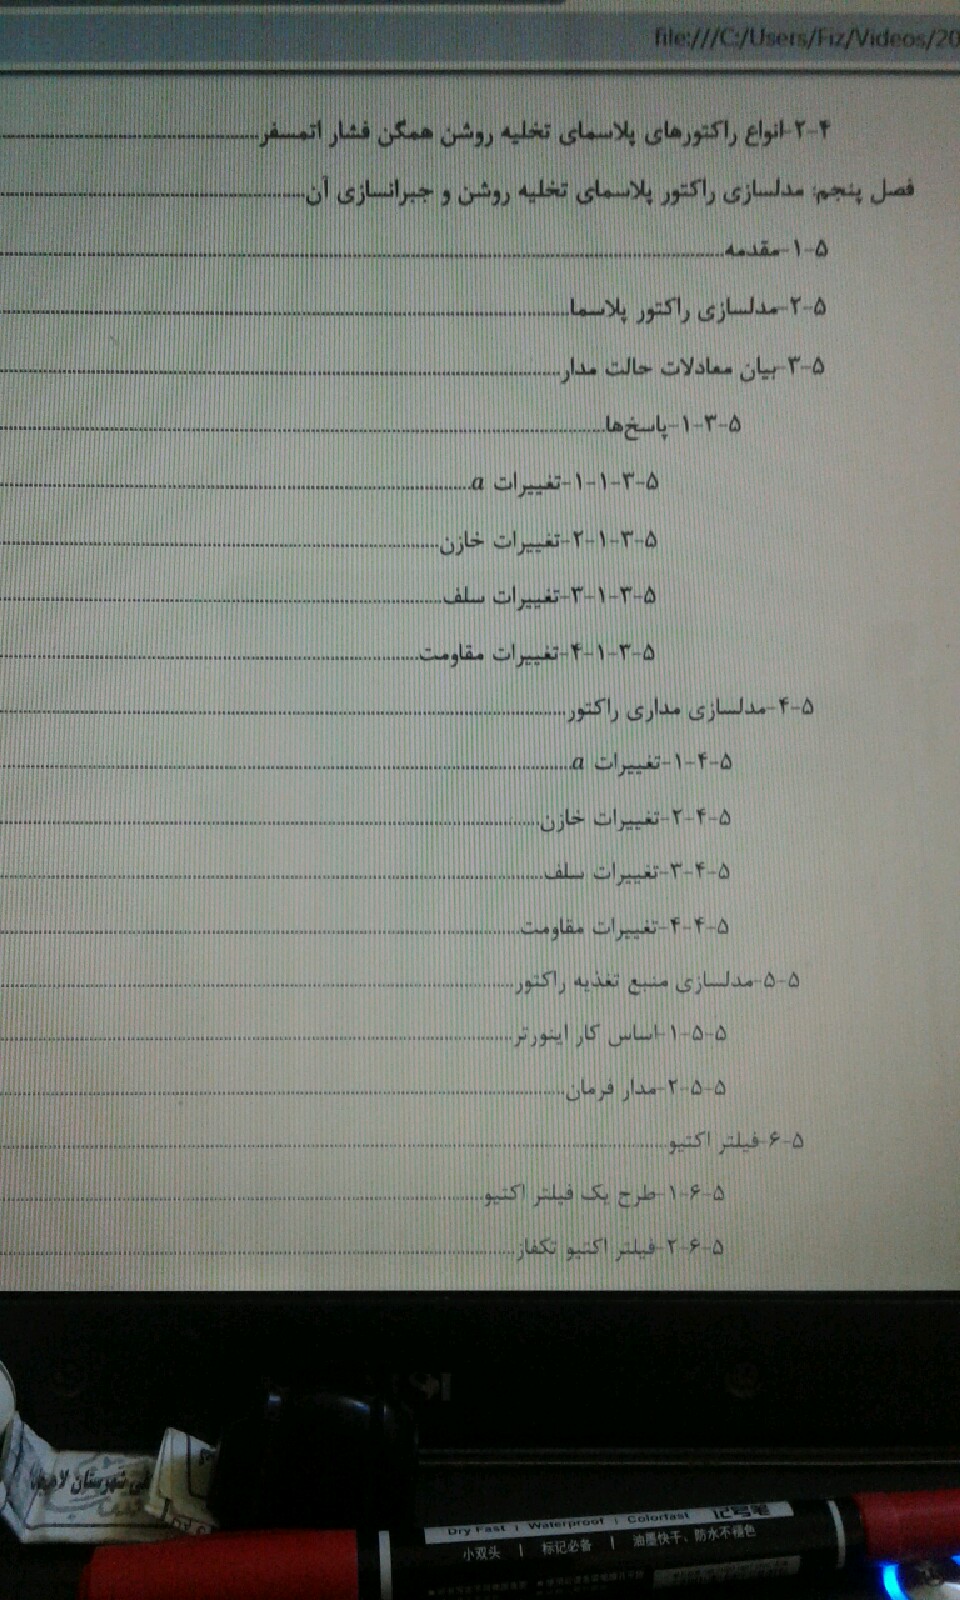 file:///C:/Users/Fiz/Videos/20
۴-۲-انواع راکتورهای پلاسمای تخلیه روشن همگن فشار اتمسفر
فصل پنجم: مدلسازی راکتور پلاسمای تخلیه روشن و جبرانسازی آن
۵-۱-مقدمه
۵-۲-مدلسازی راکتور پلاسما
۵-۳-بیان معادلات حالت مدار
۵-۳-۱-پاسخ‌ها
۵-۳-۱-۱-تغییرات a
۵-۳-۱-۲-تغییرات خازن
۵-۳-۱-۳-تغییرات سلف
۵-۳-۱-۴-تغییرات مقاومت
۵-۴-مدلسازی مداری راکتور
۵-۴-۱-تغییرات a
۵-۴-۲-تغییرات خازن
۵-۴-۳-تغییرات سلف
۵-۴-۴-تغییرات مقاومت
۵-۵-مدلسازی منبع تغذیه راکتور
۵-۵-۱-اساس کار اینورتر
۵-۵-۲-مدار فرمان
۵-۶-فیلتر اکتیو
۵-۶-۱-طرح یک فیلتر اکتیو
۵-۶-۲-فیلتر اکتیو تکفاز
شهرستان
Dry Fast | Waterproof | Colorfast 记号笔
小双头 | 标记必备 | 油墨快干、防水不褪色